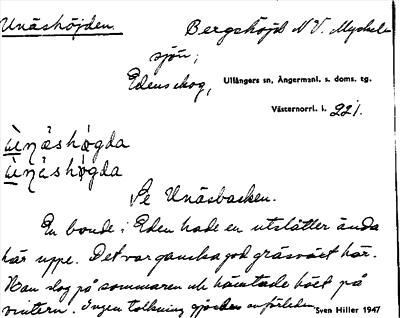 Unåshöjden. Bergshöjd N V. Myckel-
sjön;
Edens skog, Ullångers sn, Ångermanl. s. doms. tg.
Västernorrl. l. 221.
ùnåshø̀gda
ùnåshø̀gda
Se Unåsbacken.
En bonde i Eden hade en utslåtter ända
här uppe. Det var ganska god gräsväxt här.
Han slog på sommaren och hämtade höet på
vintern. Ingen tolkning gjordes
Sven Hiller 1947